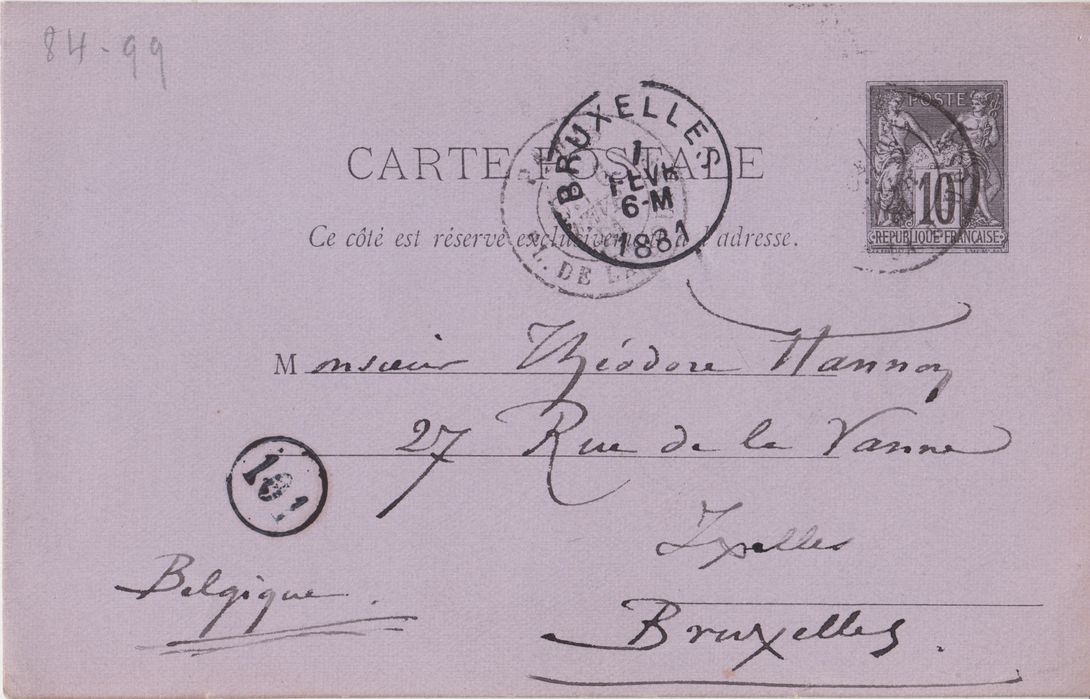 84-99
POSTE
10
RÉPUBLIQUE FRANÇAISE
CARTE POSTALE
BRUXELLES
1
FEVR
6-M
1881
PL. DE LA
Ce côté est réservé exclusivement à l'adresse.
Monsieur Théodore Hannon
27 Rue de la Vanne
Ixelles
Bruxelles.
Belgique.
101